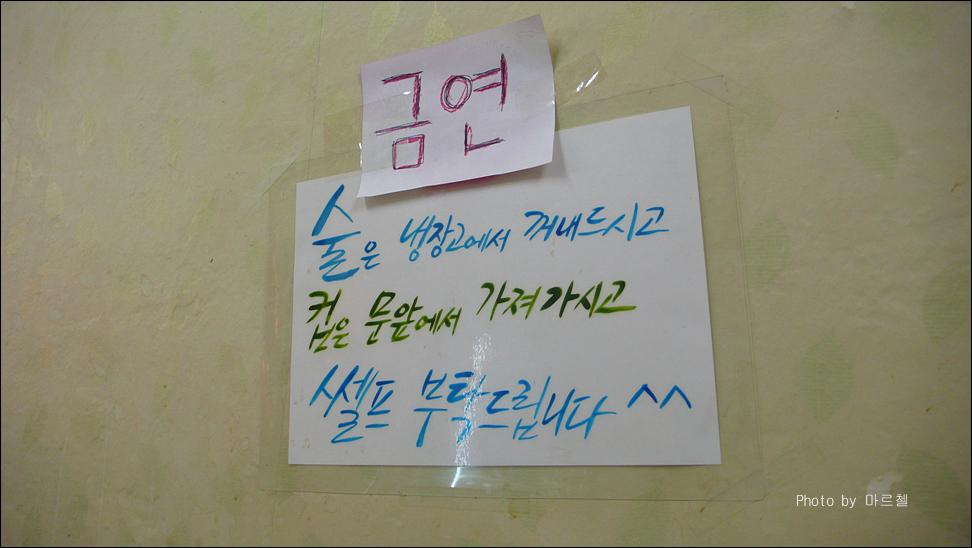 금연
술은 냉장고에서 꺼내드시고
컵은 문앞에서 가져가시고
쎌프 부탁드립니다 ^^
Photo by 마르첼